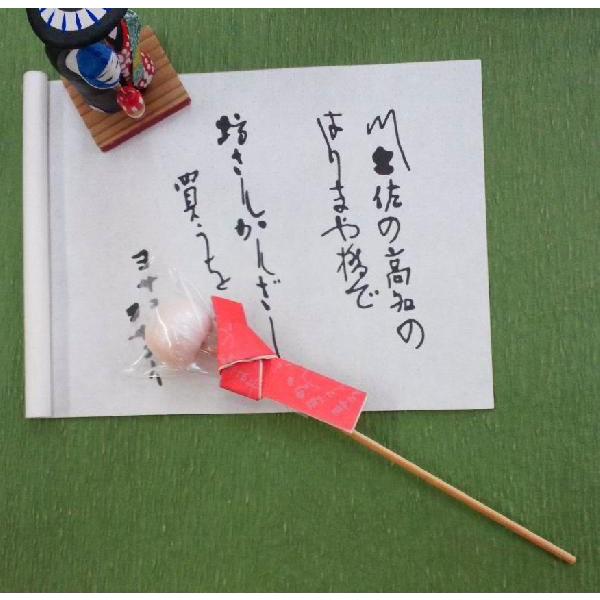 〽土佐の高知の
はりまや橋で
坊さんかんざし
買うを
ヨサコイ